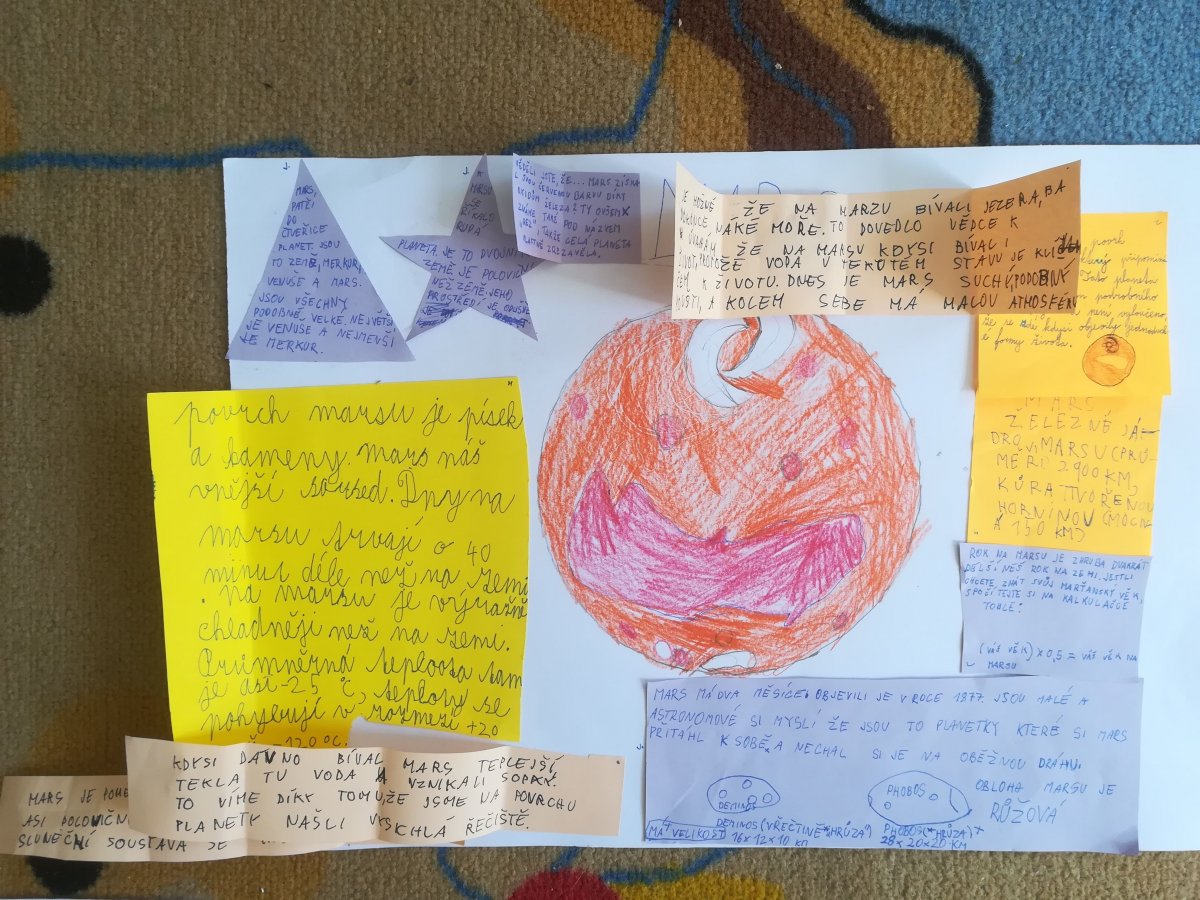 MARS
PATŘÍ
DO
ČTVEŘICE
PLANET. JSOU
TO ZEMĚ, MERKUR,
VENUŠE A MARS.
JSOU VŠECHNY
PODOBNĚ VELKÉ. NEJVĚTŠÍ
JE VENUŠE A NEJMENŠÍ
JE MERKUR.
MARSU
SE
ŘÍKALO
RUDÁ
PLANETA. JE TO DVOJNÍK
ZEMĚ JE POLOVIČNÍ
NEŽ ZEMĚ. JEHO
PROSTŘEDÍ JE
VĚDĚLI JSTE, ŽE... MARS ZÍSKAL
SVOU ČERVENOU BARVU DÍKY
OXIDŮM ŽELEZA? TY OVŠEM
ZNÁME TAKÉ POD NÁZVEM
"REZ", TAKŽE CELÁ PLANETA
VLASTNĚ ZREZAVĚLA.
JE MOŽNÉ ŽE NA MARZU BÝVALI JEZERA, BA
DOKONCE NÁKÉ MOŘE. TO DOVEDLO VĚDCE K
ÚVAHÁM ŽE NA MARSU KDYSI BÝVALI
ŽIVOT, PROTOŽE VODA V TEKUTÉM STAVU JE KLÍ
ČEM K ŽIVOTU. DNES JE MARS SUCHÝ, PODOBNÝ
POUŠTI, A KOLEM SEBE MÁ MALOU ATHOSFÉR
povrch
připomíná
Tato planeta
podrobného
není vyloučeno,
že se zde kdysi objevily jednoduch
é formy života.
MARS
ŽELEZNÉ JÁ-
DRO V MARSU (PRŮ-
MĚR) 2 900 KM,
KŮRA TVOŘENOU
HORNINOU (MOCN
Á 150 KM)
ROK NA MARSU JE ZHRUBA DVAKRÁT
DELŠÍ NEŠ ROK NA ZEMI. JESTLI
CHCETE ZNÁT SVŮJ MARŤANSKÝ VĚK,
SPOČÍTEJTE SI NA KALKULAČCE
TOHLE:
(VÁŠ VĚK) × 0,5 = VÁŠ VĚK NA
MARSU
povrch marsu je písek
a kameny. Mars náš
vnější soused. Dny na
marsu trvají o 40
minut déle než na zemi
. na marsu je výrazně
chladněji než na zemi.
Průmněrná teploosta tam
je asi -25 °C, teploty se
pohybují v rozmezí +20
-120 °C.
MARS MÁ DVA MĚSÍCE. OBJEVILI JE V ROCE 1877. JSOU MALÉ A
ASTRONOMOVÉ SI MYSLÍ ŽE JSOU TO PLANETKY KTERÉ SI MARS
PŘITÁHL K SOBĚ A NECHAL SI JE NA OBĚŽNOU DRÁHU.
DEIMOS
PHOBOS
OBLOHA MARSU JE
RŮŽOVÁ
DEMINOS (V ŘEČTINĚ HRŮZA)
PHOBOS (HRŮZA)
MÁ VELIKOST 16×12×10 KM
28×20×20 KM
KDYSI DÁVNO BÍVAL MARS TEPLEJŠÍ
TEKLA TU VODA A VZNIKALI SOPKY.
TO VÍME DÍKY TOMU, ŽE JSME NA POVRCHU
PLANETY NAŠLI VYSCHLÁ ŘEČIŠTĚ.
MARS JE
ASI POLOVIČN
SLUNEČNÍ SOUSTAVA SE